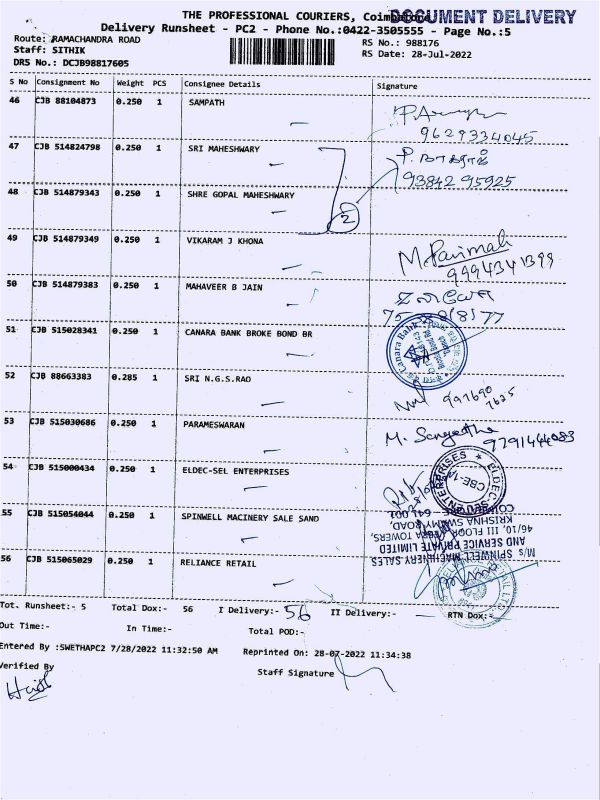 THE PROFESSIONAL COURIERS, Coimbatore
DOCUMENT DELIVERY
Delivery Runsheet - PC2 - Phone No.:0422-3505555 - Page No.:5
Route: RAMACHANDRA ROAD
RS No.: 988176
Staff: SITHIK
RS Date: 28-Jul-2022
DRS No.: DCJB98817605
S No Consignment No Weight PCS Consignee Details Signature
46 CJB 88104873 0.250 1 SAMPATH
9629334045
47 CJB 514824798 0.250 1 SRI MAHESHWARY
93842 95925
48 CJB 514879343 0.250 1 SHRE GOPAL MAHESHWARY
2
49 CJB 514879349 0.250 1 VIKARAM J KHONA
9994341399
50 CJB 514879383 0.250 1 MAHAVEER B JAIN
51 CJB 515028341 0.250 1 CANARA BANK BROKE BOND BR
Canara Bank
52 CJB 88663383 0.285 1 SRI N.G.S.RAO
997690
7625
53 CJB 515030686 0.250 1 PARAMESWARAN
M. Sangeetha
9791144083
54 CJB 515000434 0.250 1 ELDEC-SEL ENTERPRISES
55 CJB 515054044 0.250 1 SPINWELL MACINERY SALE SAND
M/s SPINWELL MACHINERY SALES
AND SERVICE PRIVATE LIMITED
46/10, III FLOOR, TOWERS,
KRISHNA SWAMY ROAD,
56 CJB 515065029 0.250 1 RELIANCE RETAIL
Tot. Runsheet:- 5 Total Dox:- 56 I Delivery:- 56 II Delivery:- RTN Dox:-
Out Time:- In Time:- Total POD:-
Entered By :SWETHAPC2 7/28/2022 11:32:50 AM Reprinted On: 28-07-2022 11:34:38
Verified By
Staff Signature